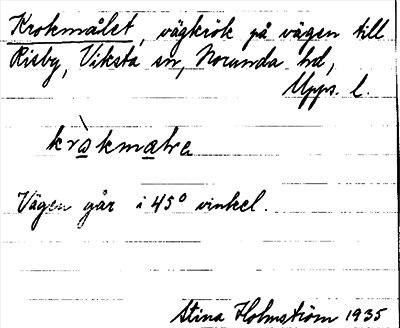 Krokmålet, vägkrök på vägen till
Risby, Viksta sn, Norunda hd,
Upps. l.
Vägen går i 45° vinkel.
Stina Holmström 1935